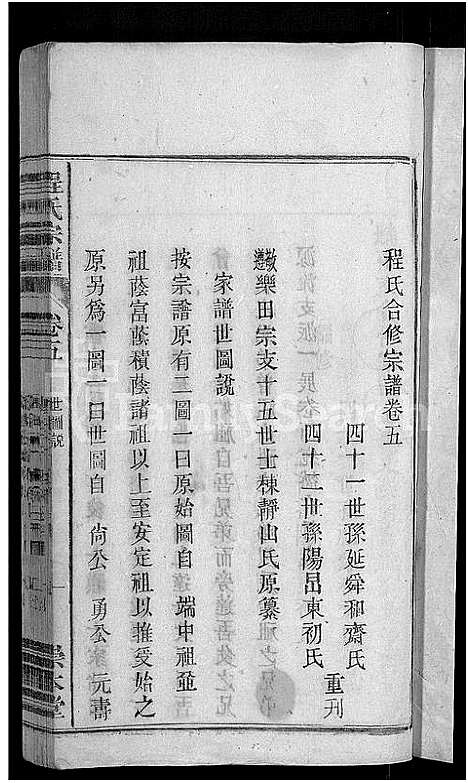 程氏合修宗譜卷五
四十一世孫延舜和齋氏
四十二世孫陽昂東初氏
重刊
樂田宗支十五世士棟靜山氏原纂
家譜世圖說
按宗譜原有二圖一曰原始圖自 端中祖並
祖蔭富蔭積蔭諸祖以上至安定祖以推受始之
原另為一圖一曰世圖自 尚公 勇公 元壽
程氏宗譜
卷五
世圖說
一
木堂